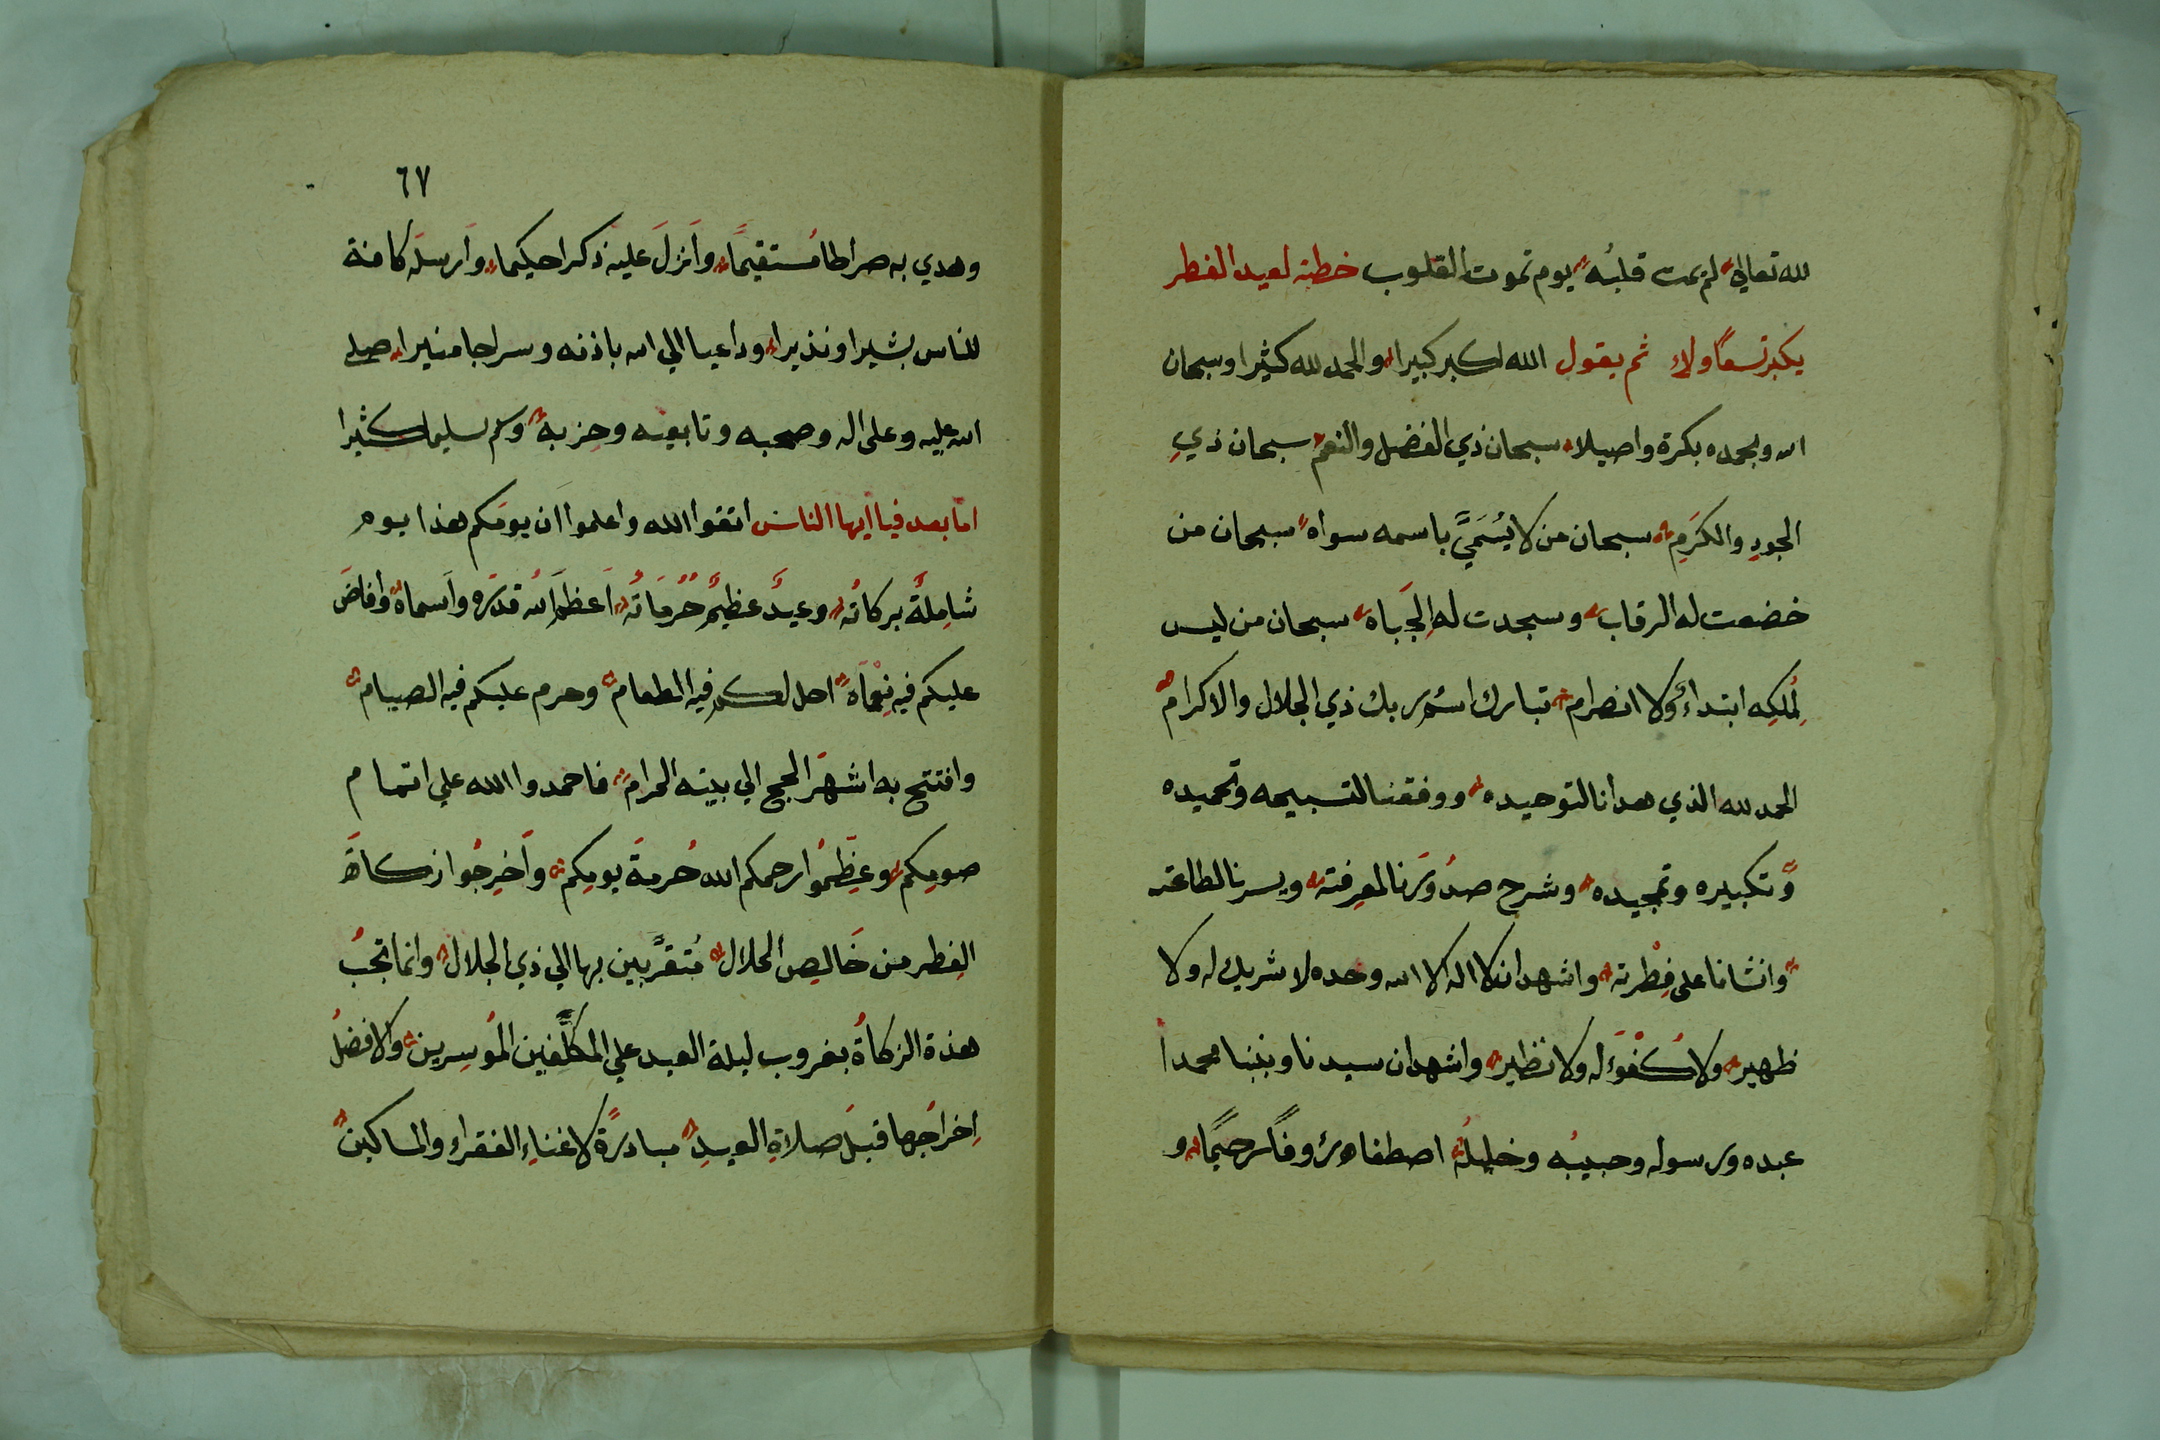 لله تعالى لم يمت قلبه يوم تموت القلوب خطبة لعيد الفطر
يكبر تسعا ولاء ثم يقول الله اكبر كبيرا والحمد لله كثيرا وسبحان
الله وبحمده بكرة واصيلا سبحان ذي الفضل والنعم سبحان ذي
الجود والكرم سبحان من لا يسمي باسمه سواه سبحان من
خضعت له الرقاب وسجدت له الجباه سبحان من ليس
لملكه ابتداء ولا انصرام تبارك اسم ربك ذي الجلال والاكرام
الحمد لله الذي هدانا لتوحيده ووفقنا لتسبيحه وتحميده
وتكبيره وتمجيده وشرح صدورنا لمعرفته ويسرنا لطاعته
وانشانا على فطرته واشهد ان لا اله الا الله وحده لا شريك له ولا
ظهير ولا كفوء له ولا نظير واشهد ان سيدنا ونبينا محمدا
عبده ورسوله وحبيبه وخليله اصطفاه رؤوفا رحيما و
٦٧
وهدي به صراطا مستقيما وأنزل عليه ذكرا حكيما وأرسله كافة
للناس بشيرا ونذيرا وداعيا الي الله باذنه وسراجا منيرا صلى
الله عليه وعلى اله وصحبه وتابعيه وحزبه وسلم تسليما كثيرا
اما بعد فيا أيها الناس اتقوا الله واعلموا ان يومكم هذا يوم
شاملة بركاته وعيد عظيم حرماته اعظم الله قدره وأسماه وأفاض
عليكم فيه نعماه احل لكم فيه الطعام وحرم عليكم فيه الصيام
وافتتح به اشهر الحج الي بيته الحرام فاحمدوا الله علي اتمام
صومكم وعظموا رحمكم الله حرمة يومكم وأخرجوا زكاة
الفطر من خالص الحلال متقربين بها الي ذي الجلال وانما تجب
هذة الزكاة بغروب ليلة العيد علي المكلفين الموسرين والافضل
إخراجها قبل صلاة العيد مبادرة لاغناء الفقراء والمساكين